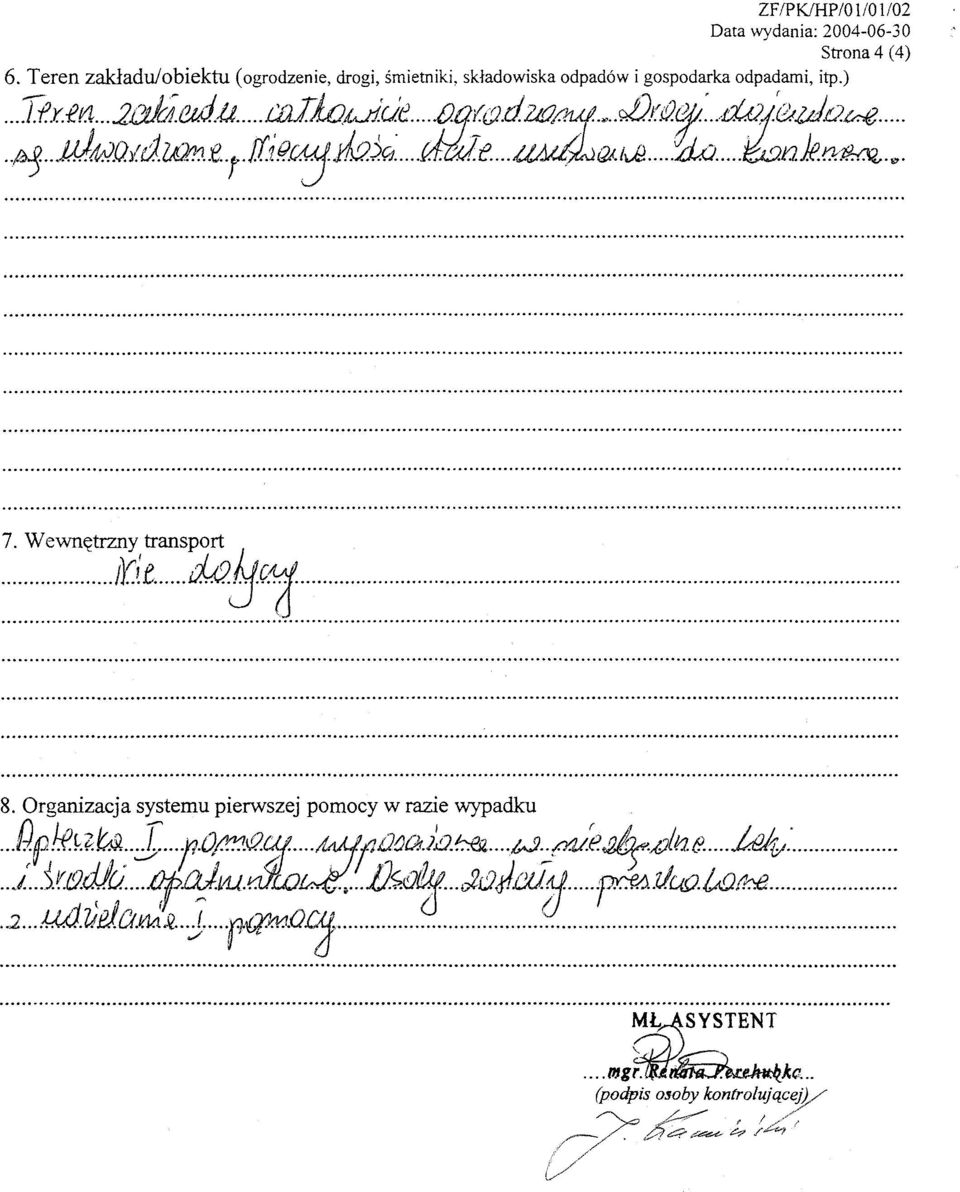 ZF/PK/HP/01/01/02
Data wydania: 2004-06-30
Strona 4 (4)
6. Teren zakładu/obiektu (ogrodzenie, drogi, śmietniki, składowiska odpadów i gospodarka odpadami, itp.)
Teren zakładu całkowicie ogrodzony. Drogi dojazdowe
są utwardzone, Nieczystości stałe usuwane do kontenera.
7. Wewnętrzny transport
Nie dotyczy
8. Organizacja systemu pierwszej pomocy w razie wypadku
Apteczka I pomocy wyposażona w niezbędne leki
i środki opatrunkowe. Osoby zostały przeszkolone
z udzielania I pomocy
MŁ. ASYSTENT
mgr. Renata Perehubka
(podpis osoby kontrolującej)
J. Kamiński